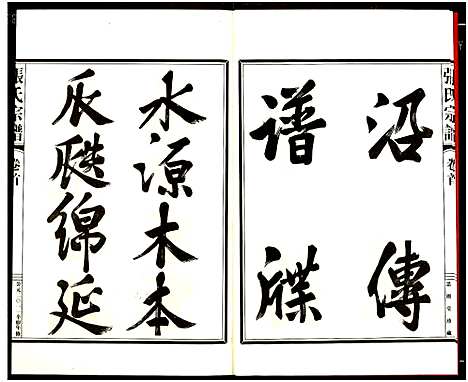 張氏宗譜
卷首
沿傳
谱牒
水源木本
瓜瓞綿延
張氏宗譜
卷首